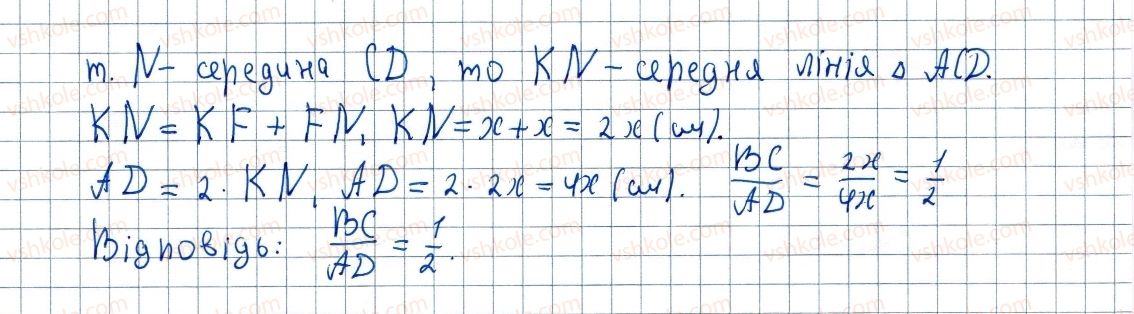 т. N – середина CD, то KN – середня лінія Δ ACD.
KN = KF + FN, KN = x + x = 2x (см).
AD = 2 · KN, AD = 2 · 2x = 4x (см). BC/AD = 2x/4x = 1/2
Відповідь: BC/AD = 1/2.